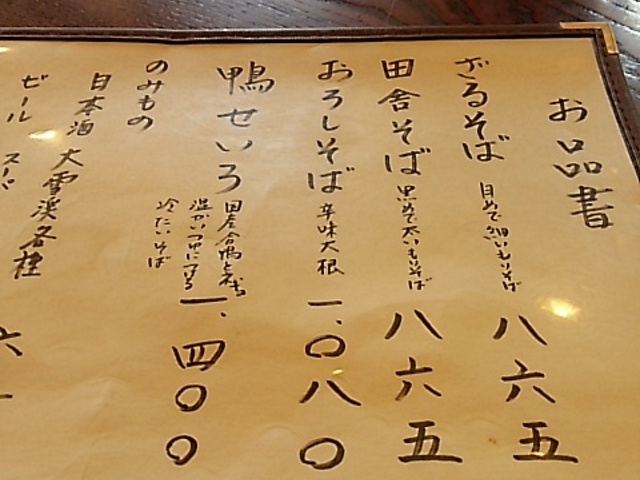 お品書
ざるそば 白めで細いもりそば 八六五
田舎そば 黒めで太いもりそば 八六五
おろしそば 辛味大根 一、〇八〇
鴨せいろ 一、四〇〇
温かいつゆにつける
冷たいそば
のみもの
日本酒 大雪渓各種
ビール スーパ
六一